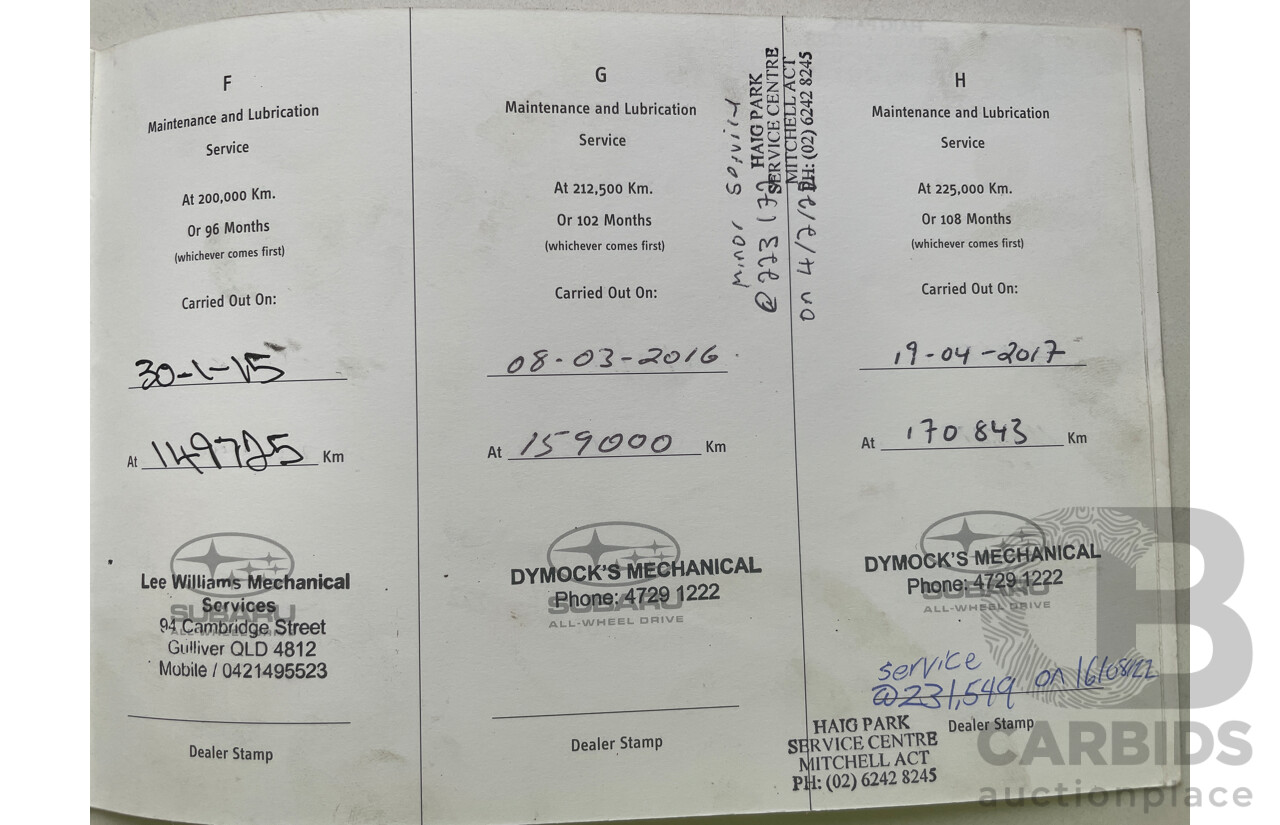 F
Maintenance and Lubrication
Service
At 200,000 Km.
Or 96 Months
(whichever comes first)
Carried Out On:
30-1-15
At 149725 Km
SUBARU
ALL-WHEEL DRIVE
Lee Williams Mechanical
Services
94 Cambridge Street
Gulliver QLD 4812
Mobile / 0421495523
Dealer Stamp
G
Maintenance and Lubrication
Service
At 212,500 Km.
Or 102 Months
(whichever comes first)
Carried Out On:
08-03-2016
At 159000 Km
DYMOCK'S MECHANICAL
Phone: 4729 1222
SUBARU
ALL-WHEEL DRIVE
Dealer Stamp
minor service
@ 223 172
on 4/2/
HAIG PARK
SERVICE CENTRE
MITCHELL ACT
PH: (02) 6242 8245
H
Maintenance and Lubrication
Service
At 225,000 Km.
Or 108 Months
(whichever comes first)
Carried Out On:
19-04-2017
At 170 843 Km
DYMOCK'S MECHANICAL
Phone: 4729 1222
SUBARU
ALL-WHEEL DRIVE
service
@231,549 on 16/08/22
Dealer Stamp
HAIG PARK
SERVICE CENTRE
MITCHELL ACT
PH: (02) 6242 8245
CARBIDS
auctionplace